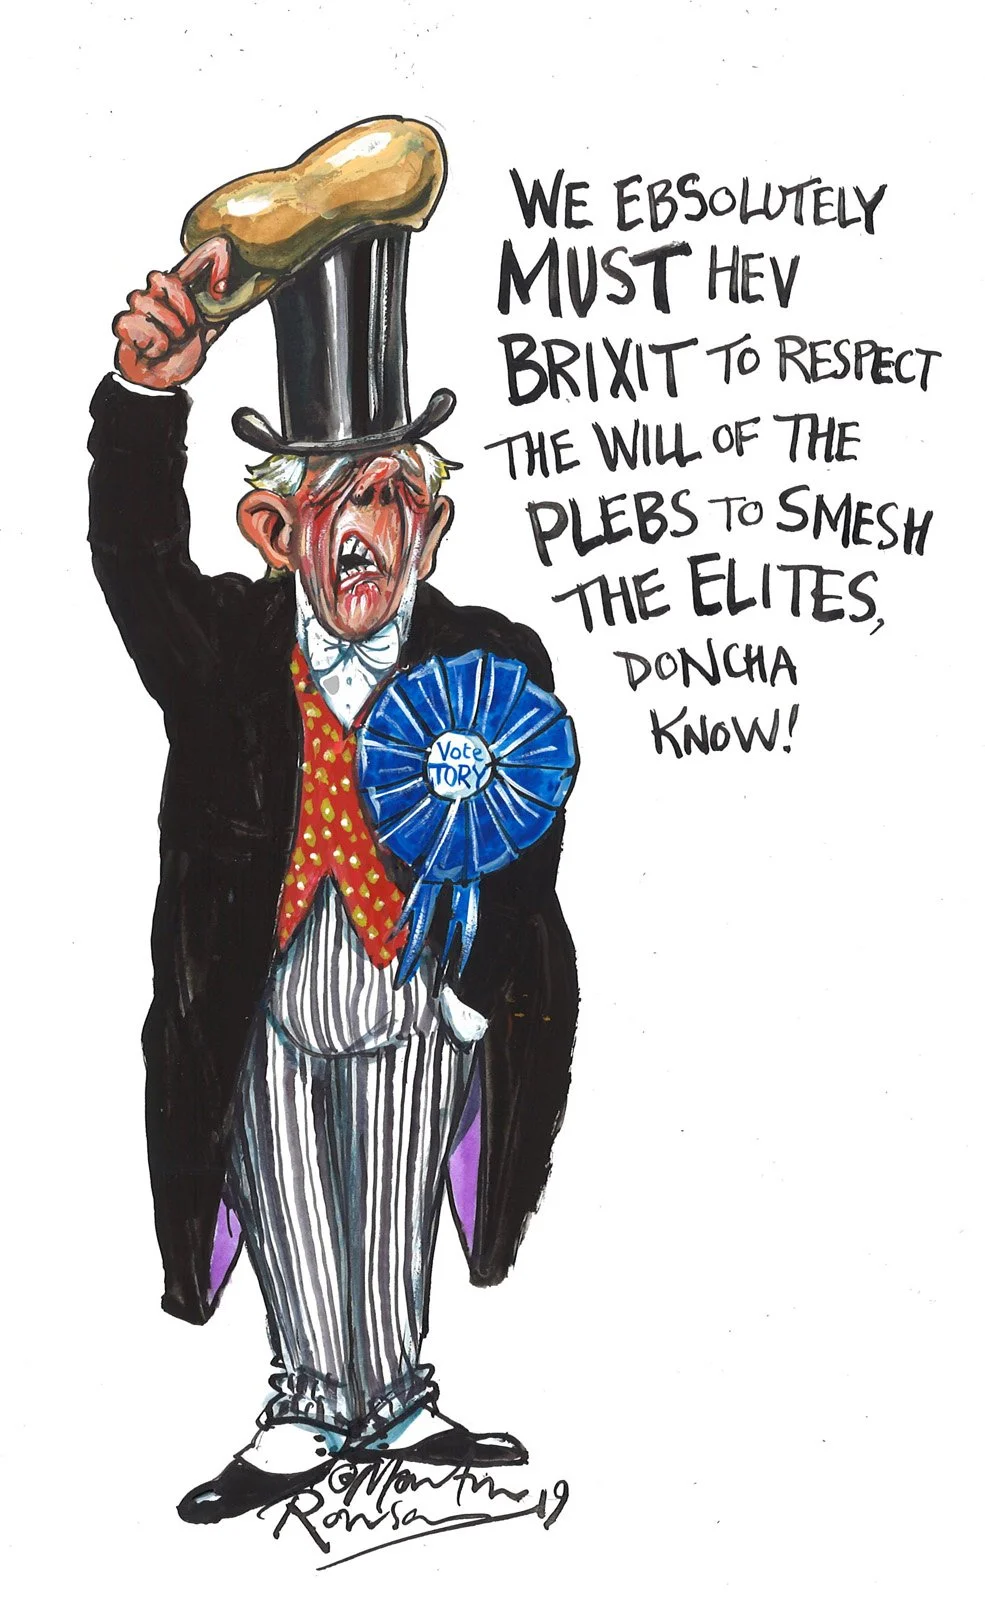 WE EBSOLUTELY
MUST HEV
BRIXIT TO RESPECT
THE WILL OF THE
PLEBS TO SMESH
THE ELITES,
DONCHA
KNOW!
Vote
TORY
© Martin
Rowson 19